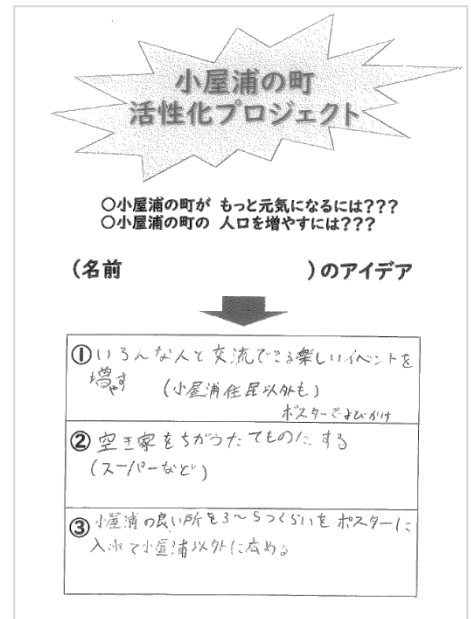 小屋浦の町
活性化プロジェクト
○小屋浦の町が もっと元気になるには???
○小屋浦の町の 人口を増やすには???
(名前 )のアイデア
①いろんな人と交流できる楽しいイベントを
増やす (小屋浦住民以外も)
ポスターでよびかけ
②空き家をちがうたてものにする
(スーパーなど)
③小屋浦の良い所を3~5つくらいをポスターに
入れて小屋浦以外に広める